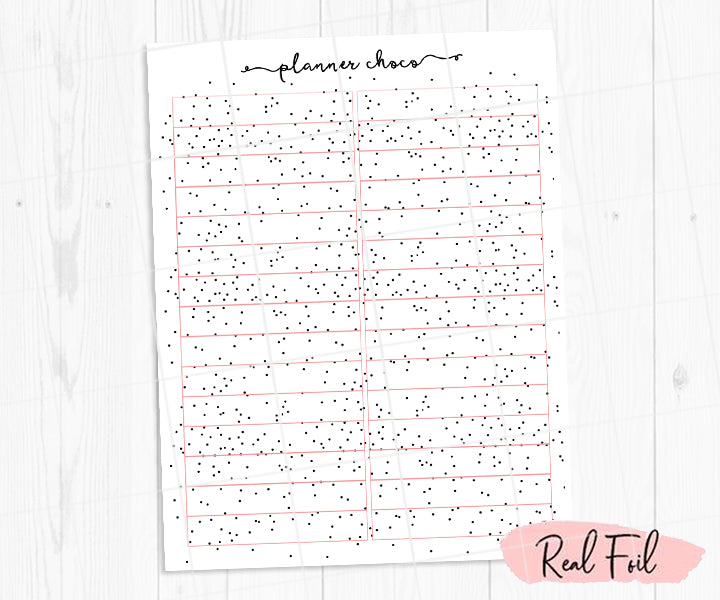 planner choco
Real Foil